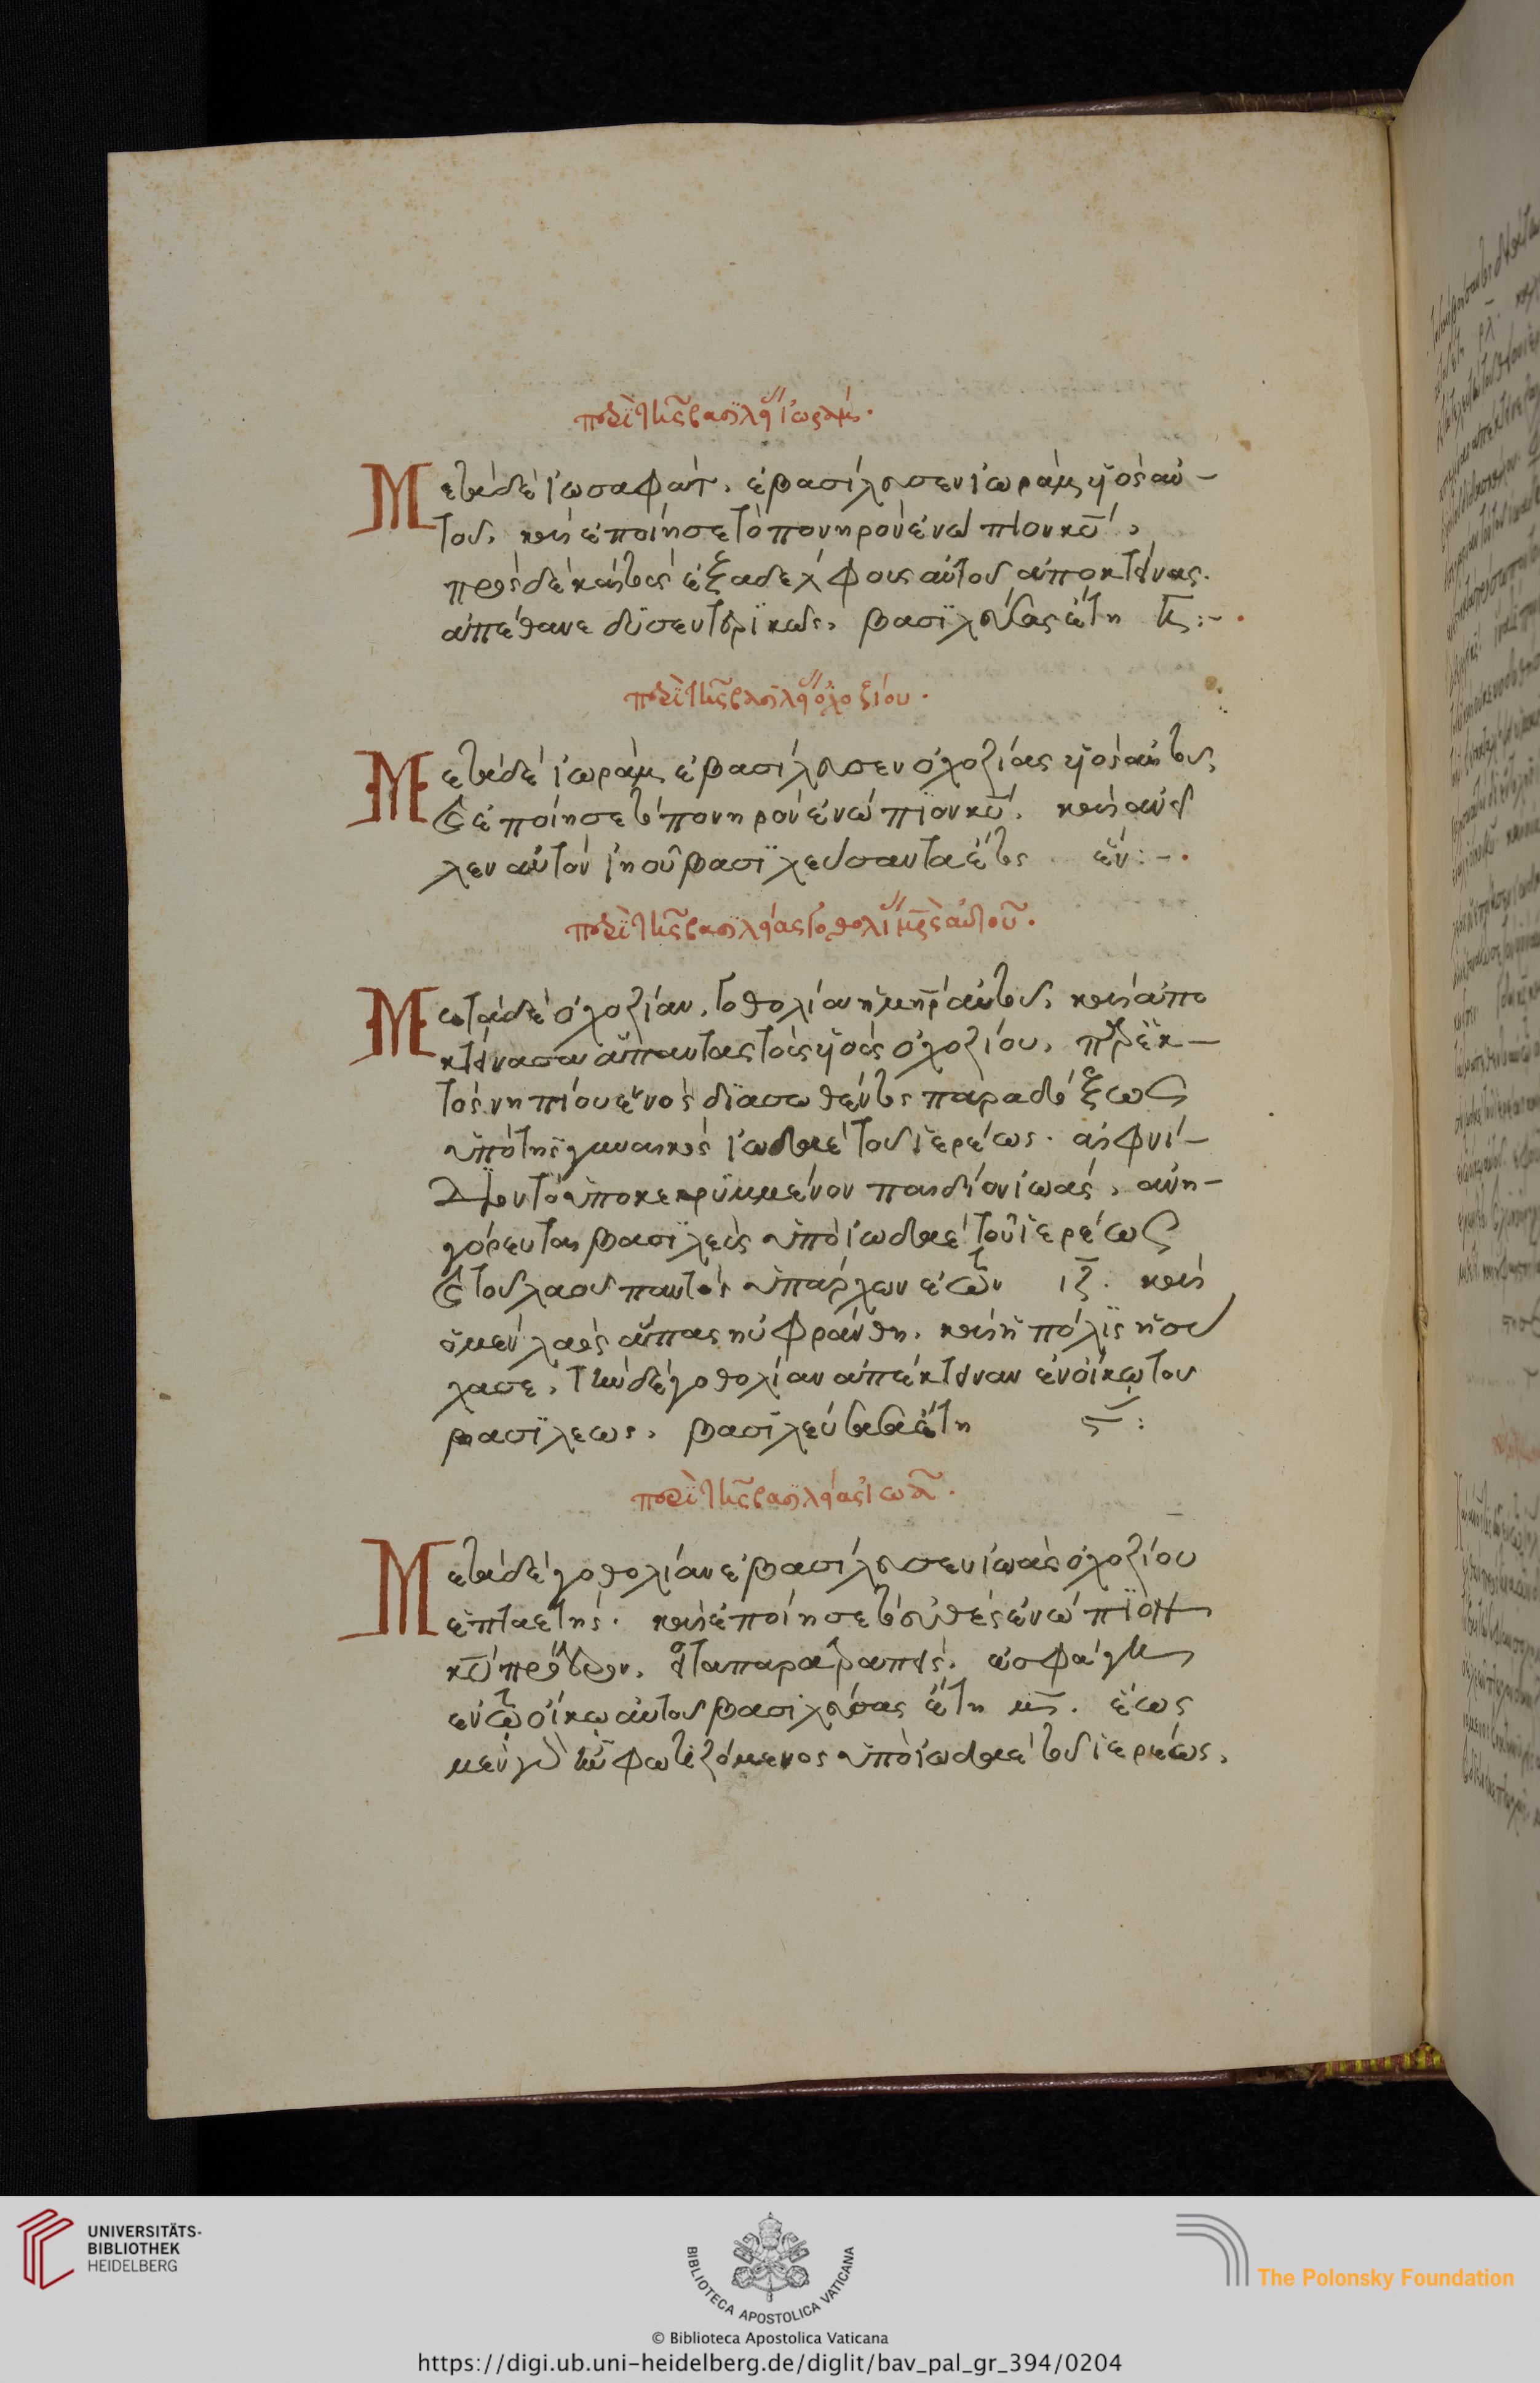 περὶ τῆς βασιλεί ἰωράμ.
Μετὰ δὲ ἰωσαφὰτ. ἐβασίλευσεν ἰωρὰμ ϋἱὸς αὐ-
τοῦ. καὶ ἐποίησε τὸ πονηρὸν ἐνώπιον κ̅υ̅,
πρὸς δὲ καὶ τοὺς ἐξαδέλφους αὐτοῦ ἀποκτείνας.
ἀπέθανε δϋσεντερϊκῶς, βασϊλεύσας ἔτη :-
περὶ τῆς βασιλεί ὀχοζίου.
Μετὰ δὲ ἰωρὰμ ἐβασίλευσεν ὀχοζίας ϋἱὸς αὐτοῦ,
καὶ ἐποίησε τὸ πονηρὸν ἐνώπϊον κ̅υ̅. καὶ ἀνεῖ
λεν αὐτὸν ἰηοῦ βασϊλεύσαντα ἔτος ἕν:-
περὶ τῆς βασιλείας γοθολί μ̅ρ̅ς αὐτοῦ.
Μετὰ δὲ ὀχοζίαν, γοθολία ἡ μ̅η̅ρ̅ αὐτοῦ, καὶ ἀπο
κτείνασα ἅπαντας τοὺς ϋἱοὺς ὀχοζίου, πλὴν ἑκ-
τὸς νηπίου ἑνὸς δϊασωθέντος παραδόξως
ὑπὸ τῆς γυναικὸς ἰωδαὲ τοῦ ἱερέως. αἰφνί-
διον τὸ ὑποκεκρϋμμένον παιδίον ἰωάς, ἀνη-
γόρευται βασϊλεὺς ὑπὸ ἰωδαὲ τοῦ ἱερέως
καὶ τοῦ λαοῦ παντὸς ὑπάρχων ἐτῶν ιζ. καὶ
ὁ μὲν λαὸς ἅπας ηὐφράνθη. καὶ ἡ πόλϊς ἡσύ
χασε, τὴν δὲ γοθολίαν ἀπέκτειναν ἐν οἴκῳ του
βασϊλεως, βασϊλεύσασα ἔτη ϛ̅:
περὶ τῆς βασιλείας ἰωὰ.
Μετὰ δὲ γοθολίαν ἐβασίλευσεν ἰωὰς ὀχοζίου
ἑπταετής. καὶ ἐποίησε τὸ εὐθὲς ἐνώπϊον
κ̅υ̅ πρότερον. εἶτα παρατραπεὶς. ἐσφάγη
ἐν τῷ οἴκῳ αὐτοῦ βασιλεύσας ἔτη μ̅. ἕως
μὲν γὰρ ἦν φωτιζόμενος ὑπὸ ἰωδαὲ τοῦ ἱερέως,
UNIVERSITÄTS-
BIBLIOTHEK
HEIDELBERG
BIBLIOTECA APOSTOLICA VATICANA
The Polonsky Foundation
© Biblioteca Apostolica Vaticana
https://digi.ub.uni-heidelberg.de/diglit/bav_pal_gr_394/0204